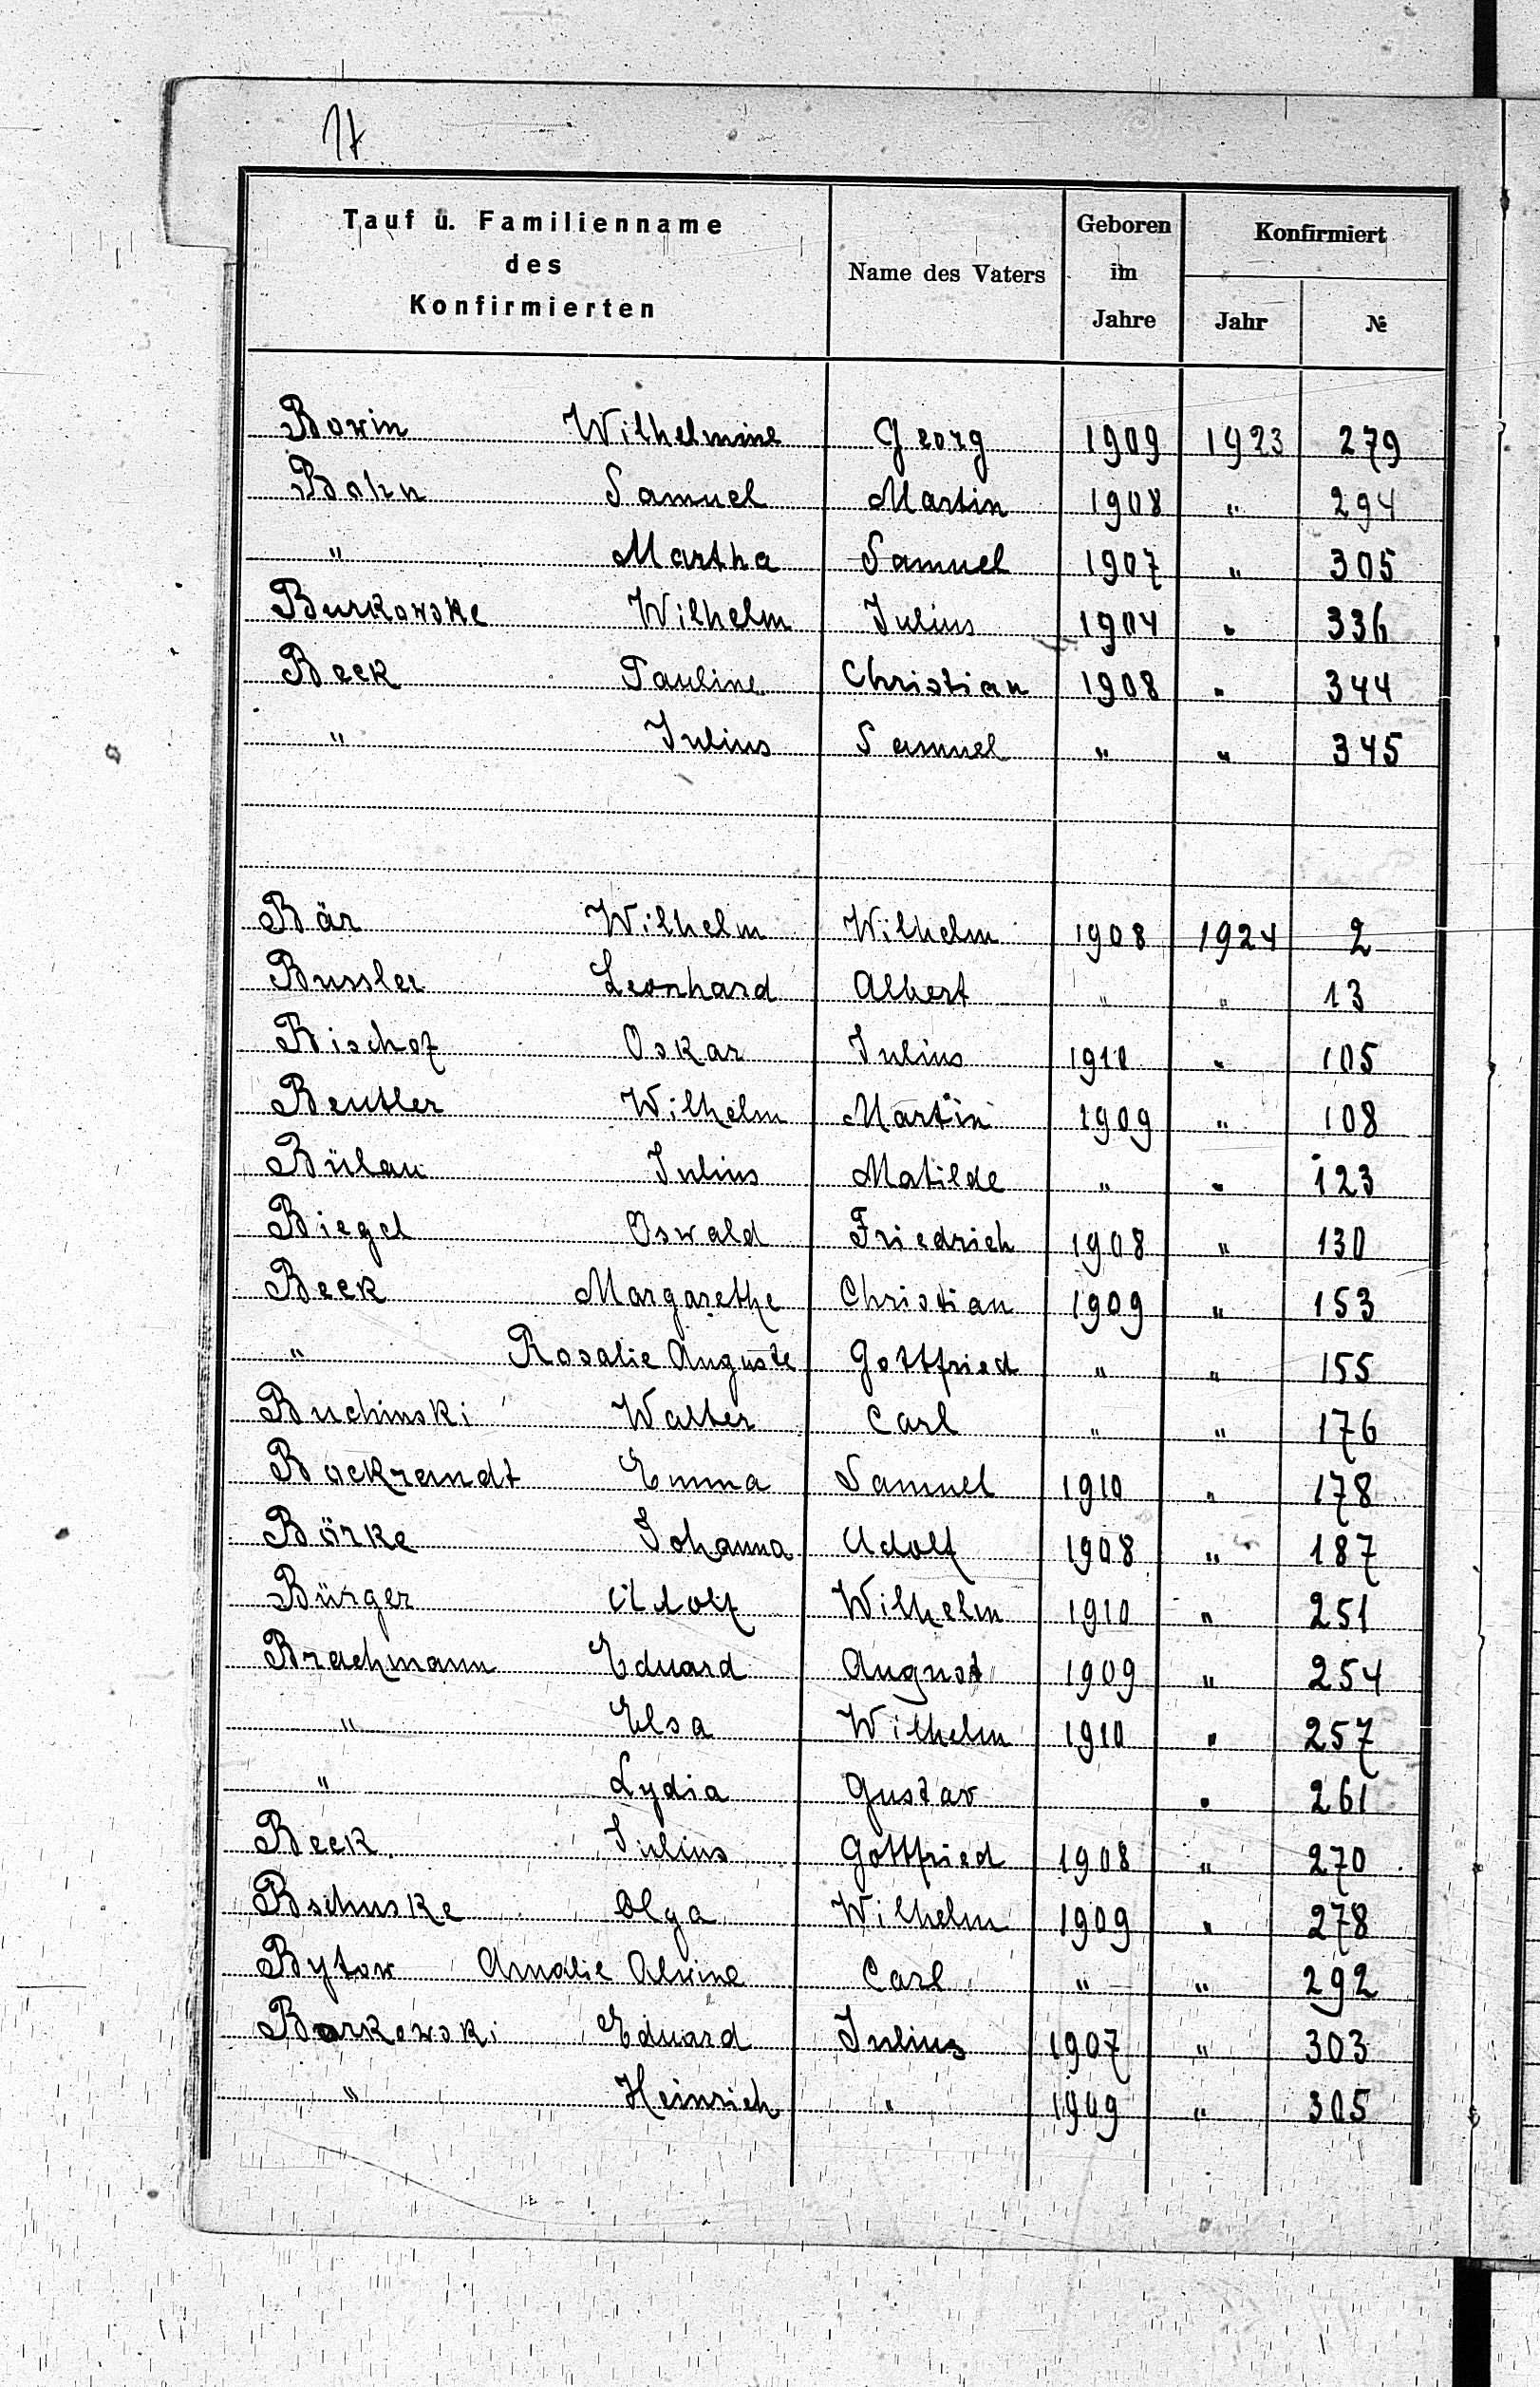 17
Tauf u. Familienname des Konfirmierten Name des Vaters Geboren im Jahre Konfirmiert Jahr №
Bowin Wilhelmine Georg 1909 1923 279
Bohn Samuel Martin 1908 " 294
" Martha Samuel 1907 " 305
Burkowske Wilhelm Julius 1904 " 336
Beek Pauline Christian 1908 " 344
" Julius Samuel " " 345
Bär Wilhelm Wilhelm 1908 1924 2
Bussler Leonhard Albert " " 13
Bischof Oskar Julius 1910 " 105
Beutler Wilhelm Martin 1909 " 108
Bülau Julius Matilde " " 123
Biegel Oswald Friedrich 1908 " 130
Beek Margarethe Christian 1909 " 153
" Rosalie Auguste Gottfried " " 155
Buchinski Walter Carl " " 176
Bockrandt Emma Samuel 1910 " 178
Börke Johanna Adolf 1908 " 187
Bürger Adolf Wilhelm 1910 " 251
Brachmann Eduard August 1909 " 254
" Elsa Wilhelm 1910 " 257
" Lydia Gustav " 261
Beek Julius Gottfried 1908 " 270
Bschuske Olga Wilhelm 1909 " 278
Bytow Amalie Alwine Carl " " 292
Borkowski Eduard Julius 1907 " 303
" Heinrich " 1909 " 305